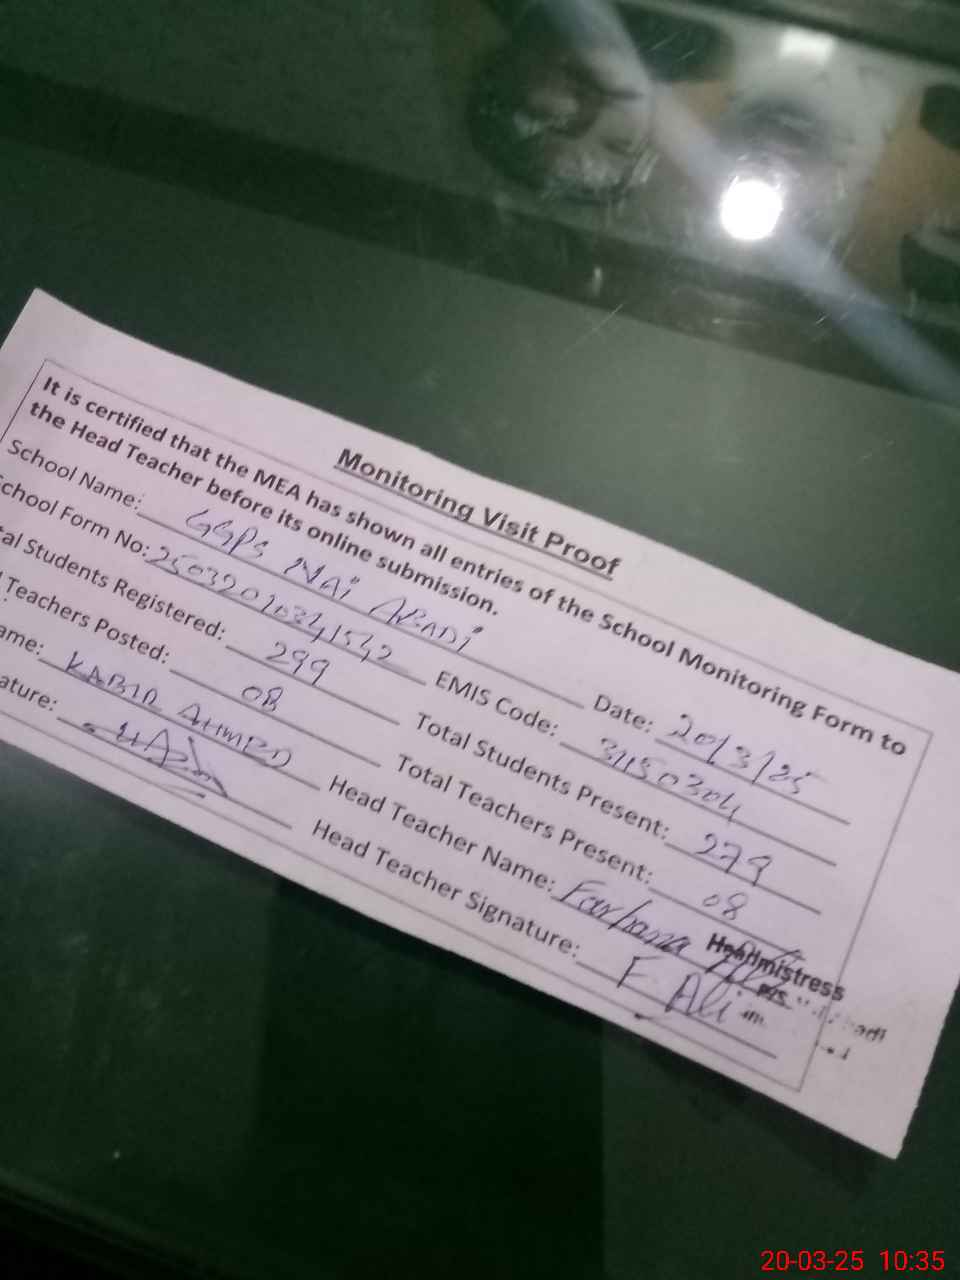 Monitoring Visit Proof
It is certified that the MEA has shown all entries of the School Monitoring Form to
the Head Teacher before its online submission.
School Name: GGPS NAi ABADi Date: 20/3/25
chool Form No: EMIS Code: 31150304
al Students Registered: 299 Total Students Present: 279
Teachers Posted: 08 Total Teachers Present: 08
ame: KABIR AHMED Head Teacher Name: Farhana Ali
ature: Head Teacher Signature: F. Ali
Headmistress
20-03-25 10:35